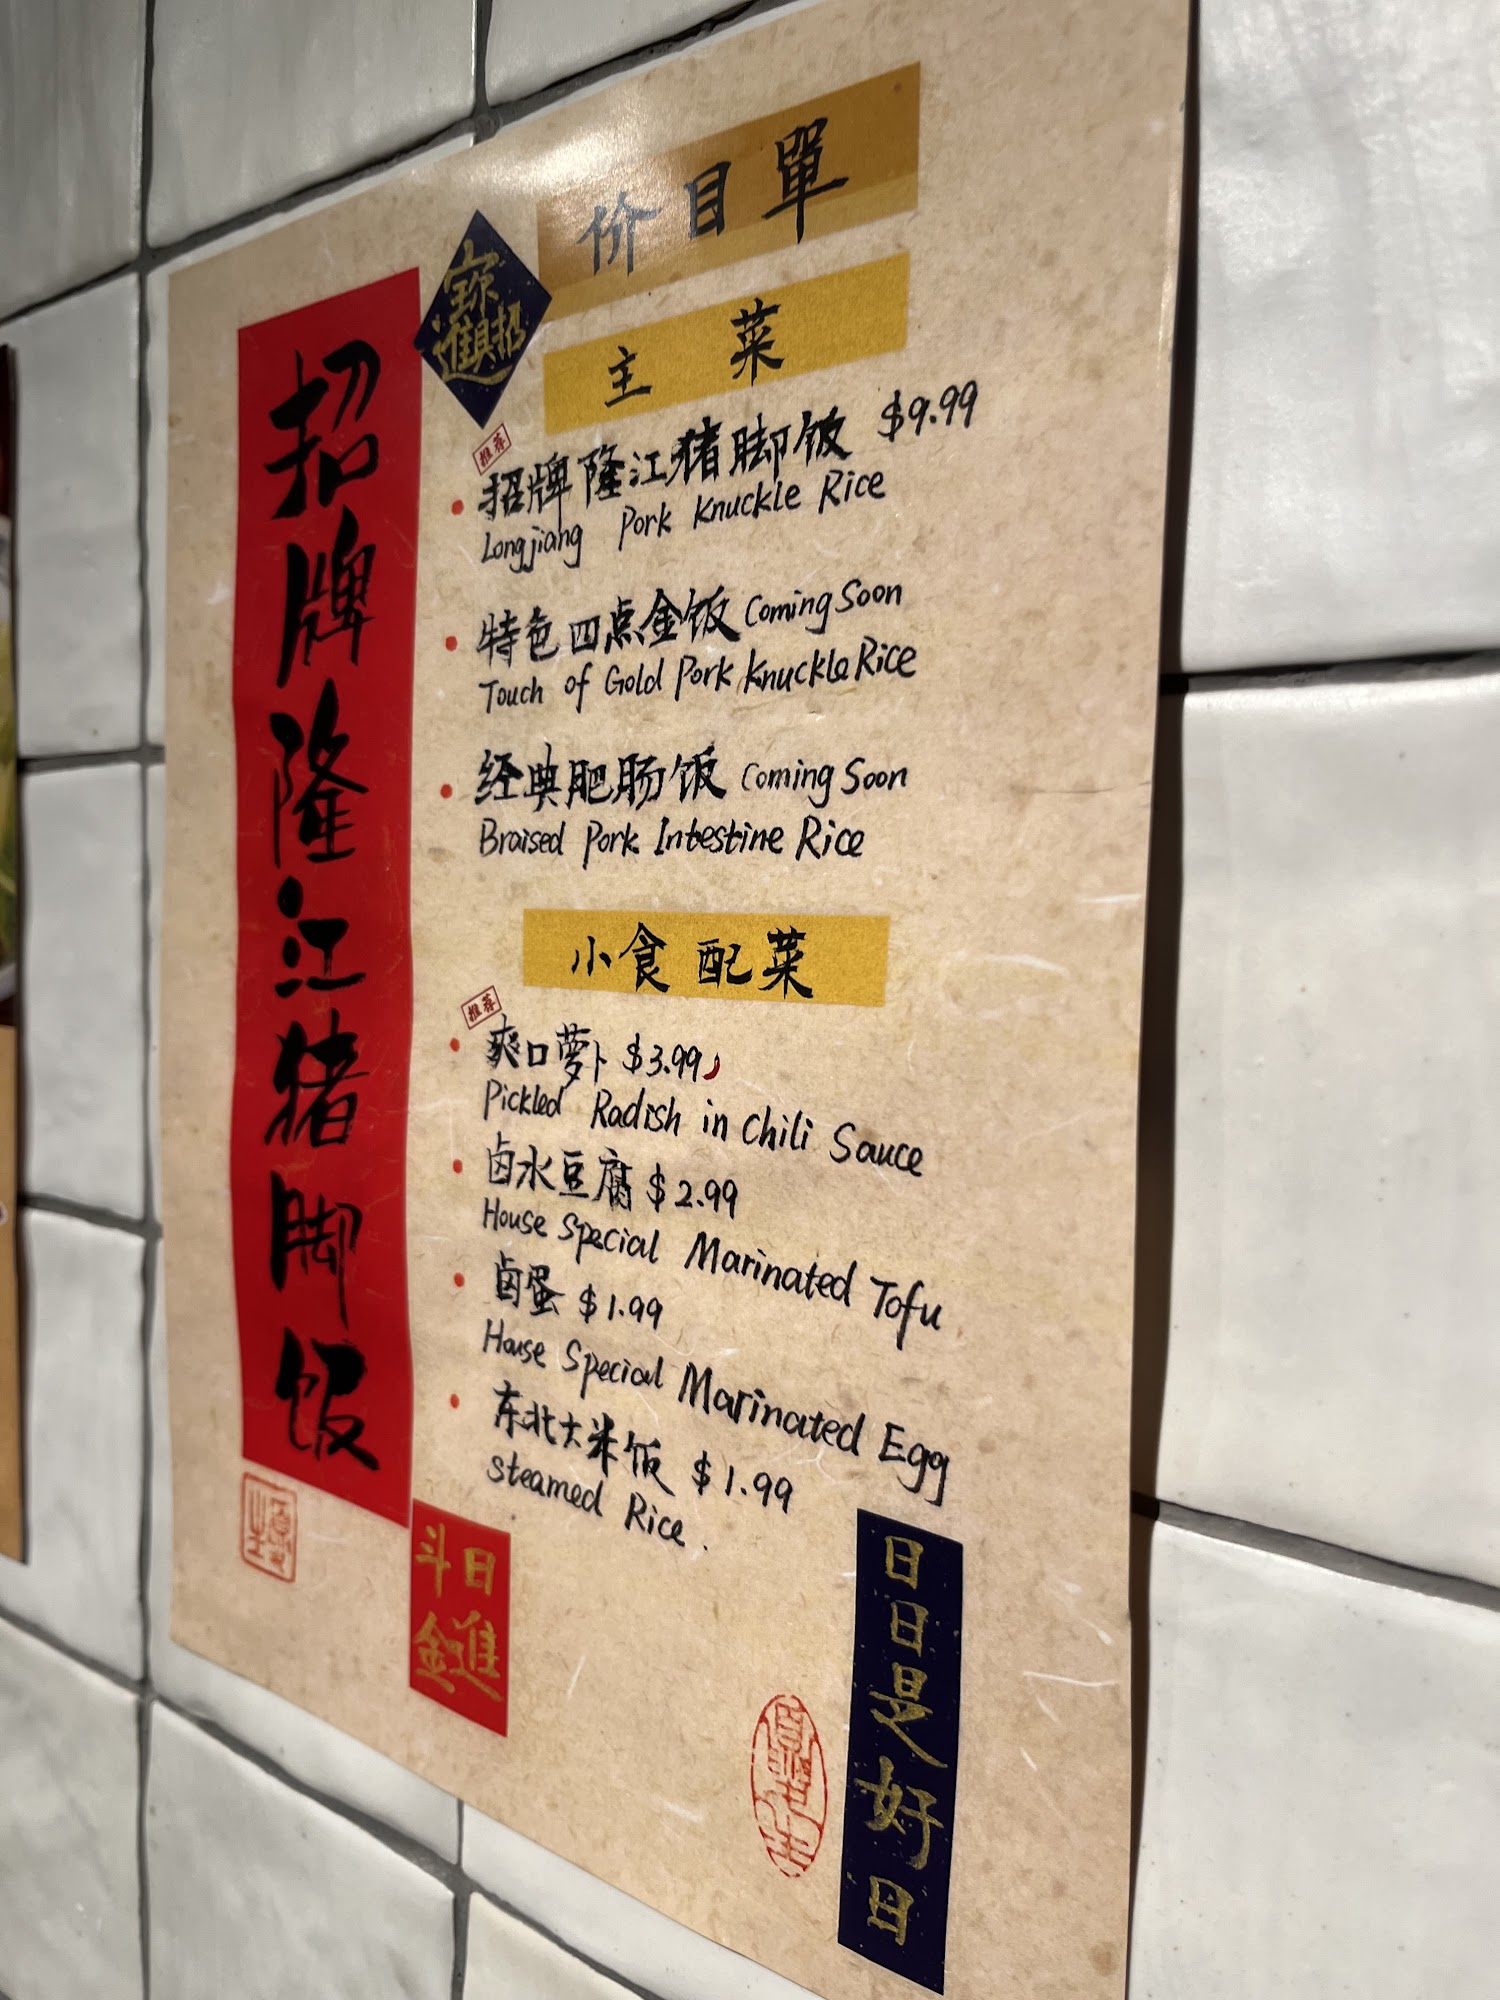 价目單
主菜
推荐
招牌隆江猪脚饭 $9.99
Longjiang Pork Knuckle Rice
特色四点金饭 Coming Soon
Touch of Gold Pork Knuckle Rice
经典肥肠饭 Coming Soon
Braised Pork Intestine Rice
小食配菜
推荐
爽口萝卜 $3.99
Pickled Radish in Chili Sauce
卤水豆腐 $2.99
House Special Marinated Tofu
卤蛋 $1.99
House Special Marinated Egg
东北大米饭 $1.99
Steamed Rice.
招牌隆江猪脚饭
招財進寳
日進斗金
日日是好日